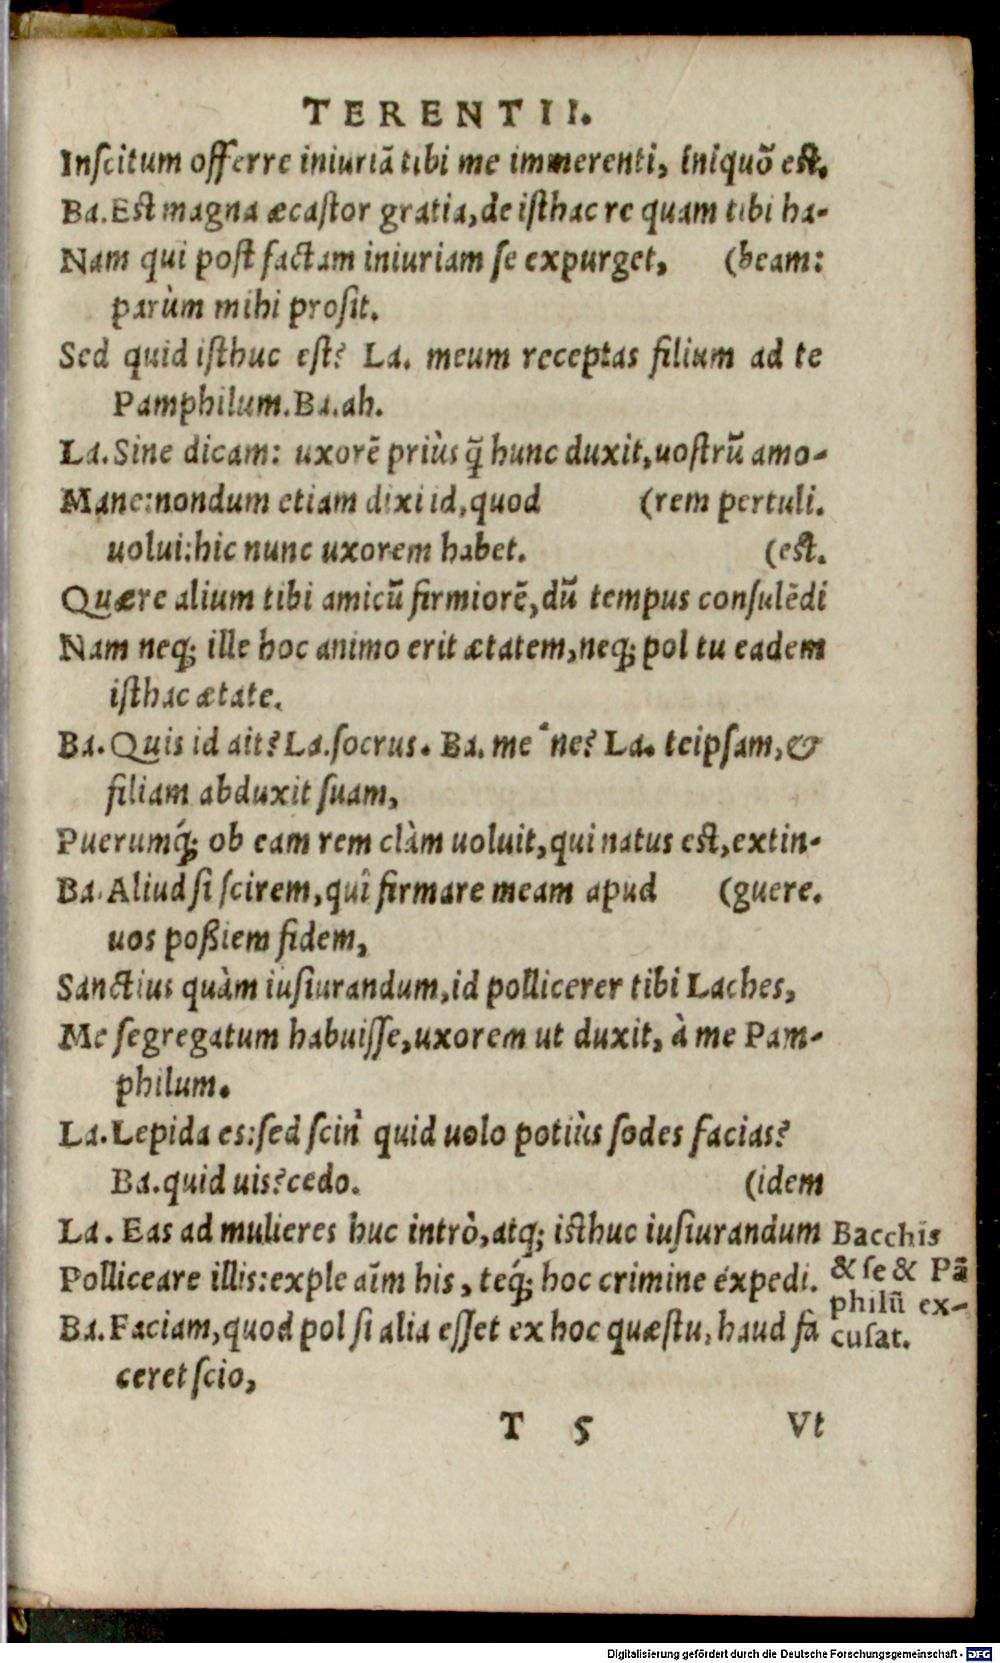 TERENTII.
Inſcitum offerre iniuriā tibi me immerenti, iniquō eſt.
Ba. Eſt magna æcaſtor gratia, de iſthac re quam tibi ha-
Nam qui poſt factam iniuriam ſe expurget, (beam:
parùm mihi proſit.
Sed quid iſthuc eſt? La. meum receptas filium ad te
Pamphilum. Ba. ah.
La. Sine dicam: uxorē priùs q̃ hunc duxit, uoſtrū amo-
Mane: nondum etiam dixi id, quod (rem pertuli.
uolui: hic nunc uxorem habet. (eſt.
Quære alium tibi amicū firmiorē, dū tempus conſulēdi
Nam neq; ille hoc animo erit ætatem, neq; pol tu eadem
iſthac ætate.
Ba. Quis id ait? La. ſocrus. Ba. me'ne? La. teipſam, &
filiam abduxit ſuam,
Puerumq́; ob eam rem clàm uoluit, qui natus eſt, extin-
Ba. Aliud ſi ſcirem, quî firmare meam apud (guere.
uos poßiem fidem,
Sanctius quàm iuſiurandum, id pollicerer tibi Laches,
Me ſegregatum habuiſſe, uxorem ut duxit, à me Pam-
philum.
La. Lepida es: ſed ſcin' quid uolo potiùs ſodes facias?
Ba. quid uis? cedo. (idem
La. Eas ad mulieres huc intrò, atq; iſthuc iuſiurandum
Polliceare illis: exple aīm his, teq́; hoc crimine expedi.
Ba. Faciam, quod pol ſi alia eſſet ex hoc quæſtu, haud fa
ceret ſcio,
Bacchis
& ſe & Pā
philū ex-
cuſat.
T 5 Vt
Digitalisierung gefördert durch die Deutsche Forschungsgemeinschaft - DFG